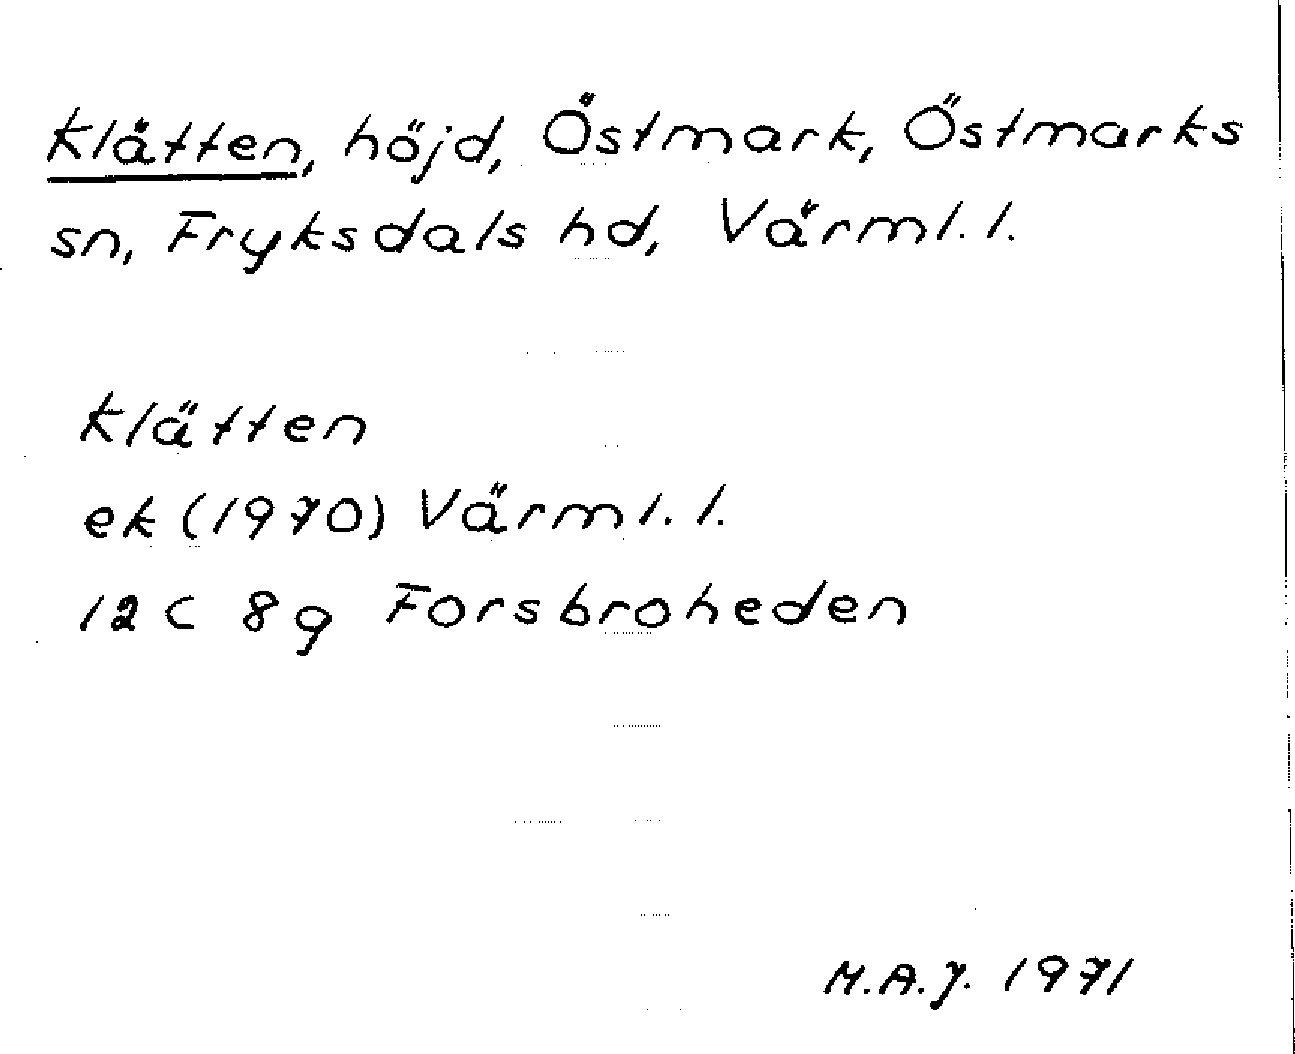 Klätten, höjd, Östmark, Östmarks
sn, Fryksdals hd, Värml. l.
Klätten
ek (1970) Värml. l.
12 C 8 g Forsbroheden
M.A.J. 1971